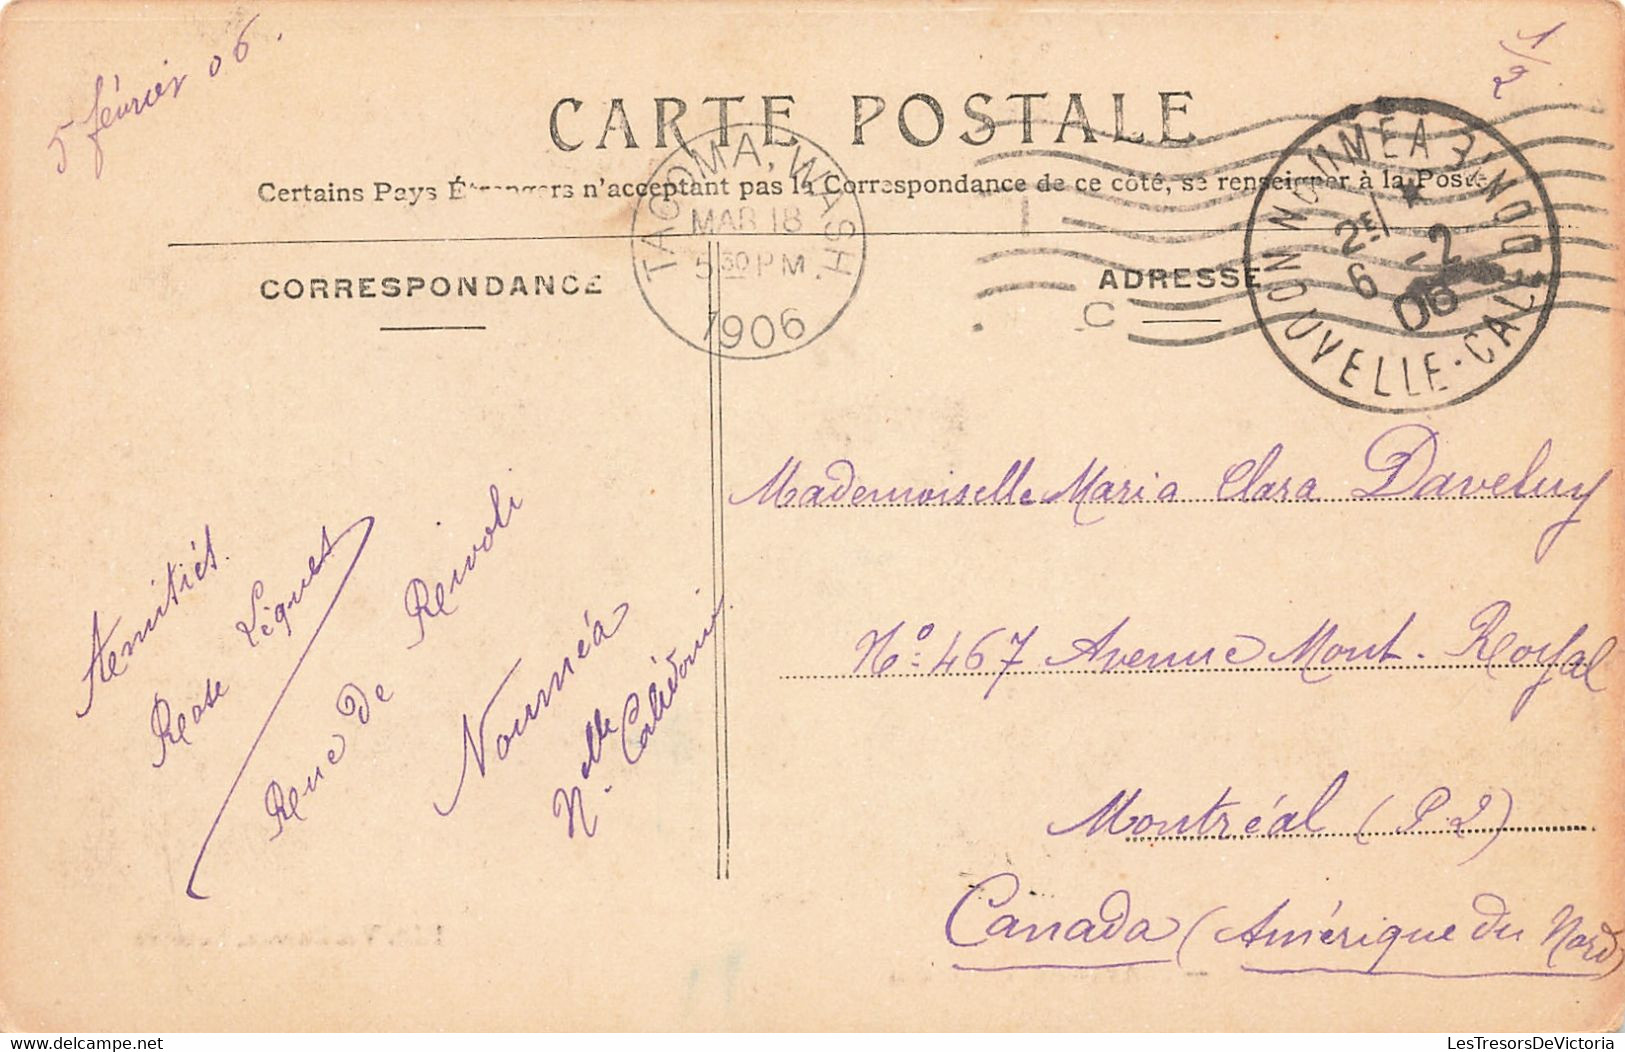 5 février 06.
1/2
CARTE POSTALE
Certains Pays Étrangers n'acceptent pas la Correspondance de ce côté, se renseigner à la Poste
TACOMA, WASH.
MAR 18
5 30 PM
1906
NOUMEA
2E
6 -2
06
NOUVELLE-CALEDONIE
CORRESPONDANCE
ADRESSE
C
Amitiés.
Rose Léques
Rue de Rivoli
Nouméa
Nelle Calédonie
Mademoiselle Maria Clara Daveluy
No: 467 Avenue Mont-Royal
Montréal (P.2)
Canada (Amérique du Nord)
LesTresorsDeVictoria@Yahoo.com
LesTresorsDeVictoria